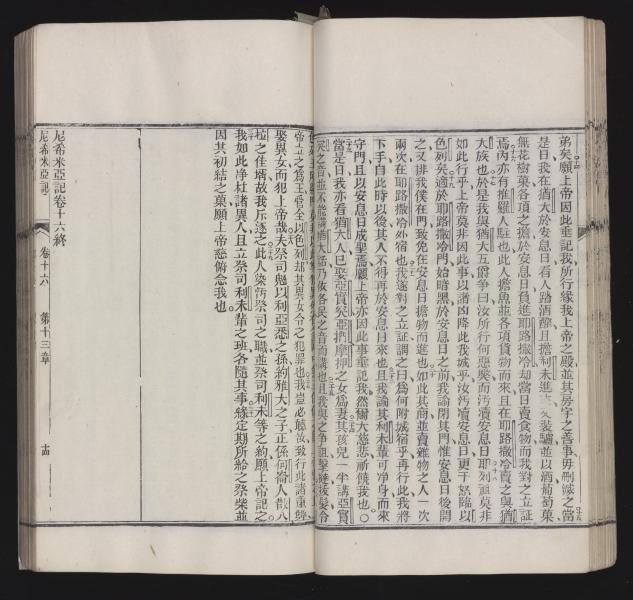 弟矣願上帝因此垂記我所行緣我上帝之殿並其房宇之善事毋刪滅之當
是日我在猶大於安息日看人踏酒醡且擔利未進
裝驢並以酒葡萄菓
無花樹菓各項之擔於安息日負進耶路撒冷却當日賣食物而我對之立証
焉內亦有推羅人駐也此人擔魚並各項貨物而來且在耶路撒冷賣之與猶
大族也於是我與猶大五爵爭曰汝所行何惡獘而汚凟安息日耶列祖莫非
如此行乎上帝莫非因此事以諸凶降此我城乎汝汚凟安息日更干怒臨以
色列矣適於耶路撒冷門始暗嚮於安息日之前我諭閉其門惟安息日後開
之又排我僕在門致免在安息日擔物而進也如此其商並賣雜物之人一次
兩次在耶路撒冷外宿也我遂對之立証謂之曰爲何附城宿乎再行此我將
下手自此時以後其人不得再於安息日來也且我諭其利未輩可淨身而來
守門且以安息日成聖焉願上帝亦因此事垂記我然爾大慈悲祈饒我也
當是日我亦看猶大人已娶亞實突亞捫摩押之女爲妻其孩兒一半講亞實
突之音並不能講猶大話乃依各民之音而講也且我與之爭
帝立之爲王管全以色列却其異女令之犯罪也我豈必聽汝致行此諸重
娶異女而犯上帝哉夫祭司魁以利亞悉之孫約雅大之子正係何崙人散八
拉之佳壻故我斥逐之此人染汚祭司之職並祭司利未等之約願上帝記之
我如此淨杜諸異人且立祭司利未輩之班各隨其事緣定期所給之祭柴並
因其初結之菓願上帝慈俯念我也
尼希米亞記卷十六終
尼希米亞記 卷十六 第十三章 十四